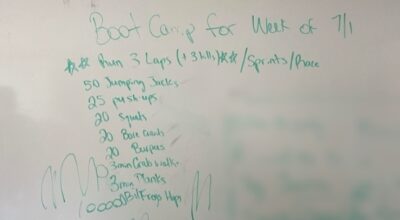 Boot Camp for Week of 7/1
** Run 3 Laps (+3 hills)**/Sprints/Race
50 Jumping Jacks
25 push-ups
20 Squats
20 Bear Crawls
20 Burpees
3min Crab walk
3min Planks
100000 Bull Frogs Hops